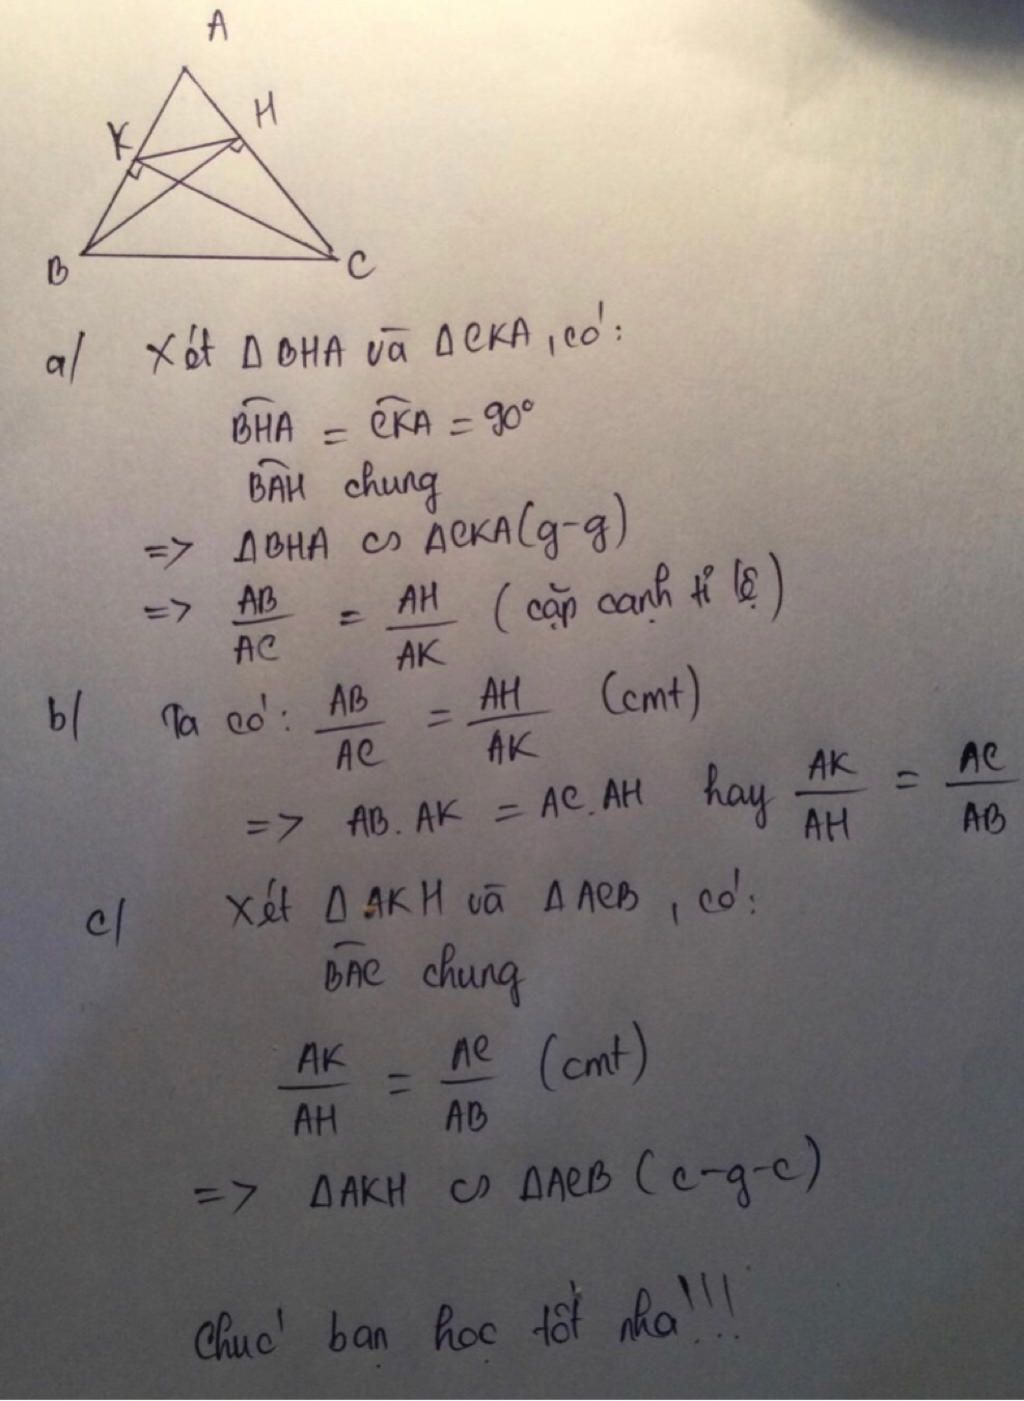 A
K
H
B
C
a/ Xét Δ BHA và Δ CKA, có:
B͡HA = C͡KA = 90°
B͡AH chung
=> ΔBHA ∽ ΔCKA (g-g)
=> AB/AC = AH/AK (cặp cạnh tỉ lệ)
b/ Ta có: AB/AC = AH/AK (cmt)
=> AB. AK = AC. AH hay AK/AH = AC/AB
c/ Xét Δ AKH và Δ ACB, có:
B͡AC chung
AK/AH = AC/AB (cmt)
=> ΔAKH ∽ ΔACB (c-g-c)
Chúc bạn học tốt nha!!!